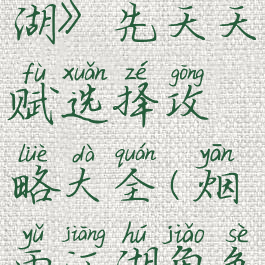 湖》先天天
fù xuǎn zé gōng
赋选择攻
lüè dà quán yān
略大全(烟
yǔ jiāng hú jiǎo sè
雨江湖角色